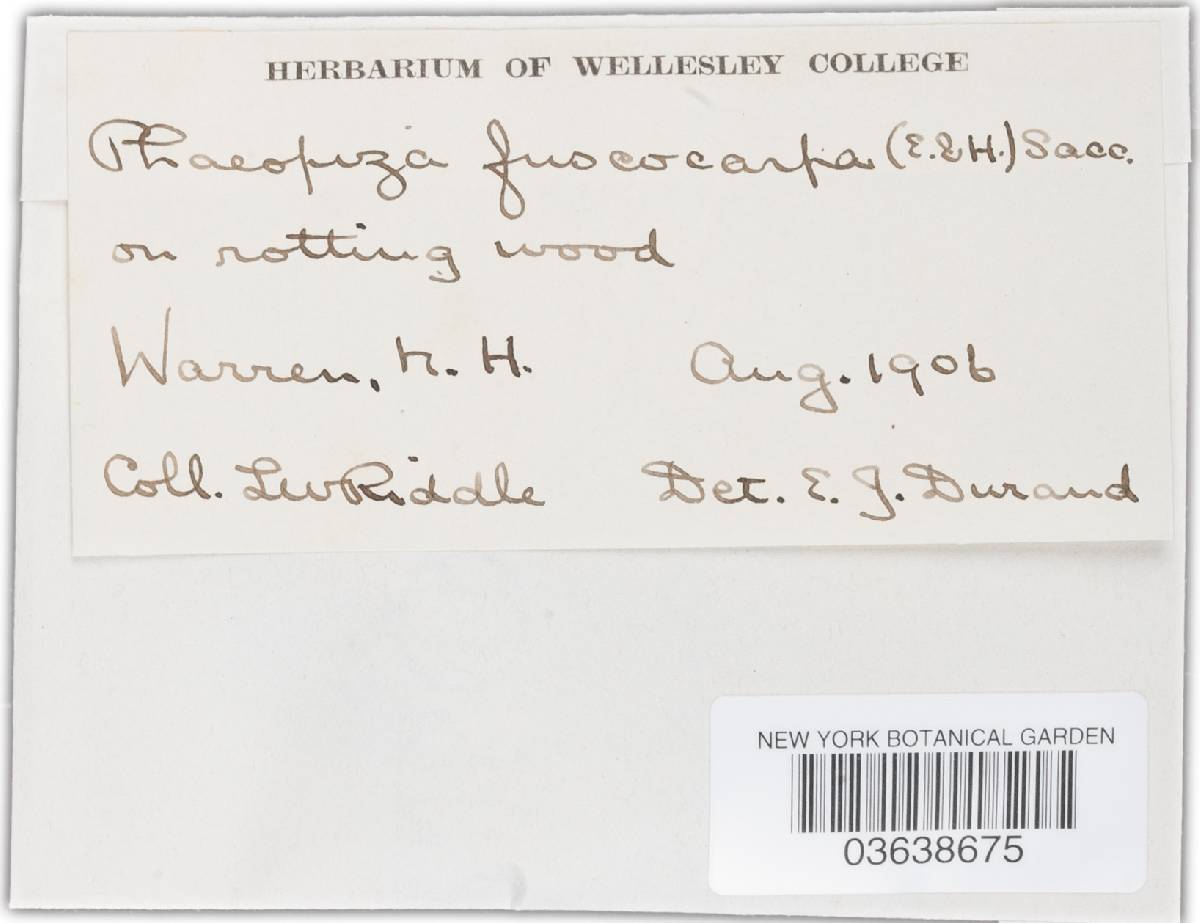 HERBARIUM OF WELLESLEY COLLEGE
Phaeopiza fuscocarpa (E.&H.) Sacc.
on rotting wood
Warren, N. H. Aug. 1906
Coll. LWRiddle Det. E. J. Durand
NEW YORK BOTANICAL GARDEN
03638675